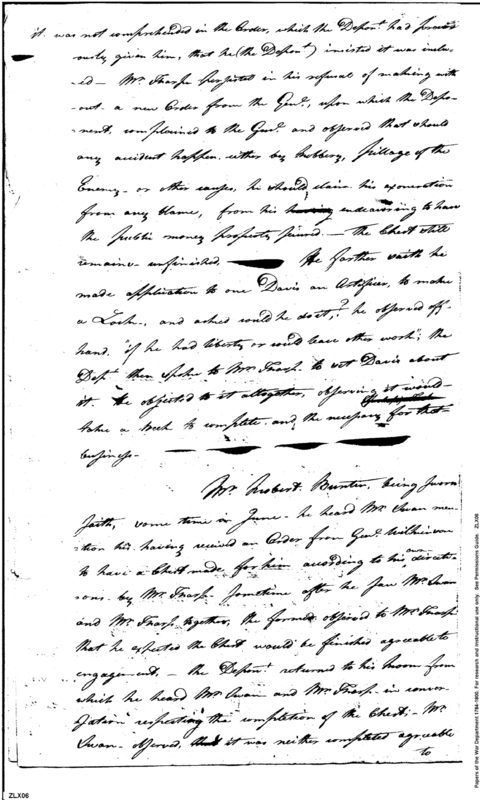 it was not comprehended in the Order, which the Depont had previ-
ously given him, that he (the Depont) insisted it was inclu-
-ed — Mr. Tharp persisted in his refusal of making with
-out a new Order from the Genl., upon which the Depo-
-nent complained to the Genl. and observed that should
any accident happen either by Robbery, pillage of the
Enemy - or other causes, he should claim his exoneration
from any blame, from his having endeavouring to have
the public money properly secured — the Chest still
remains unfinished. He farther saith he
made application to one Davis an Artificer, to make
a Lock, and asked could he do it,? he observed off-
hand, "if he had liberty or could leave other work"; the
Dept then spoke to Mr Tharp to set Davis about
it. He objected to it altogether, observing it would
take a week to complete and the necessary for that
business—
Mr. Robert Bunten, being sworn
saith, some time in June he heard Mr. Swan men-
-tion his having received an Order from Genl. Wilkinson
to have a Chest made for him according to his own directi-
-ons by Mr. Tharp. Sometime after he saw Mr. Swan
and Mr. Tharp together, the former observed to Mr. Tharp
that he expected the Chest would be finished agreeable to
engagement, — the Deponent returned to his Room from
which he heard Mr. Swan and Mr. Tharp in conver-
sation respecting the completion of the Chest; — Mr.
Swan observed, that it was neither completed agreeable
to
ZLX06
Papers of the War Department 1784-1800. For research and instructional use only. See Permissions Guide. ZLX06